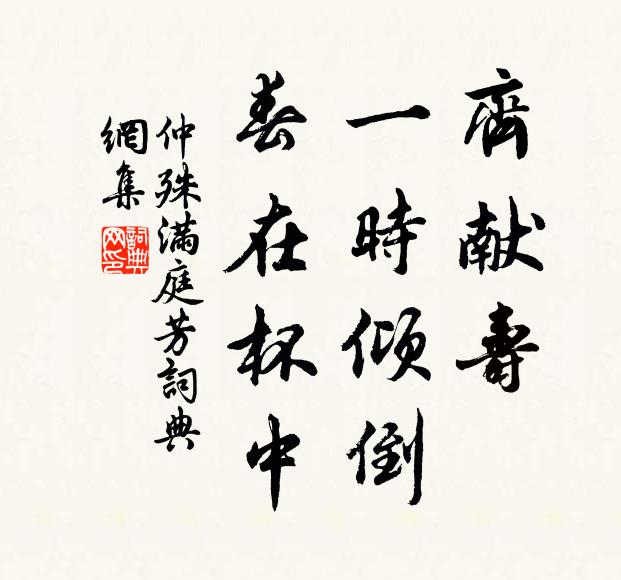 齊献壽
一時傾倒
春在杯中
仲殊滿庭芳詞典
網集
詞典網印